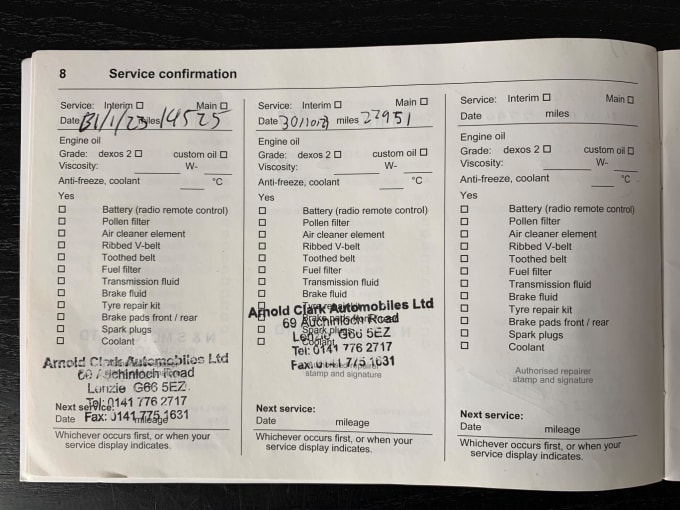 8 Service confirmation
Service: Interim ☐ Main ☐
Date 31/1/23 miles 14525
Engine oil
Grade: dexos 2 ☐ custom oil ☐
Viscosity: W-
Anti-freeze, coolant °C
Yes
☐ Battery (radio remote control)
☐ Pollen filter
☐ Air cleaner element
☐ Ribbed V-belt
☐ Toothed belt
☐ Fuel filter
☐ Transmission fluid
☐ Brake fluid
☐ Tyre repair kit
☐ Brake pads front / rear
☐ Spark plugs
☐ Coolant
Arnold Clark Automobiles Ltd
69 Auchinloch Road
Lenzie G66 5EZ
Tel: 0141 776 2717
Fax: 0141 775 1631
Next service:
Date mileage
Whichever occurs first, or when your
service display indicates.
Service: Interim ☐ Main ☐
Date miles 22951
Engine oil
Grade: dexos 2 ☐ custom oil ☐
Viscosity: W-
Anti-freeze, coolant °C
Yes
☐ Battery (radio remote control)
☐ Pollen filter
☐ Air cleaner element
☐ Ribbed V-belt
☐ Toothed belt
☐ Fuel filter
☐ Transmission fluid
☐ Brake fluid
☐ Tyre repair kit
☐ Brake pads front / rear
☐ Spark plugs
☐ Coolant
Arnold Clark Automobiles Ltd
69 Auchinloch Road
Lenzie G66 5EZ
Tel: 0141 776 2717
Fax: 0141 775 1631
Authorised repairer
stamp and signature
Next service:
Date mileage
Whichever occurs first, or when your
service display indicates.
Service: Interim ☐ Main ☐
Date miles
Engine oil
Grade: dexos 2 ☐ custom oil ☐
Viscosity: W-
Anti-freeze, coolant °C
Yes
☐ Battery (radio remote control)
☐ Pollen filter
☐ Air cleaner element
☐ Ribbed V-belt
☐ Toothed belt
☐ Fuel filter
☐ Transmission fluid
☐ Brake fluid
☐ Tyre repair kit
☐ Brake pads front / rear
☐ Spark plugs
☐ Coolant
Authorised repairer
stamp and signature
Next service:
Date mileage
Whichever occurs first, or when your
service display indicates.